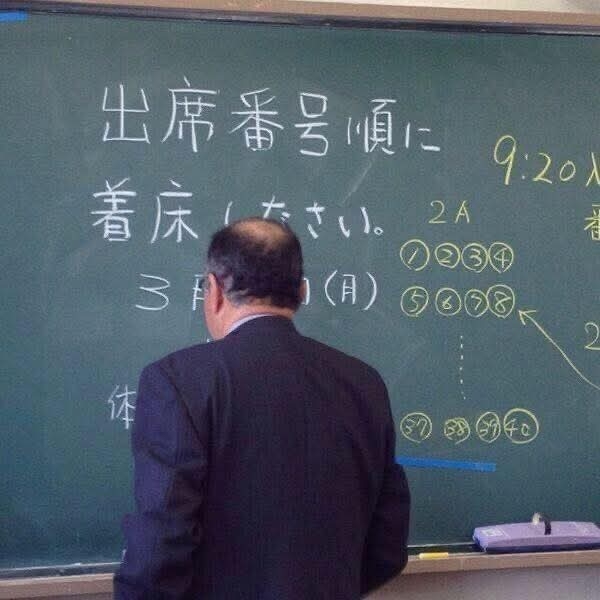 出席番号順に
着床 ださい。
3月 日(月)
体
9:20
2A
① ② ③ ④
⑤ ⑥ ⑦ ⑧
㊲ ㊳ ㊴ ㊵